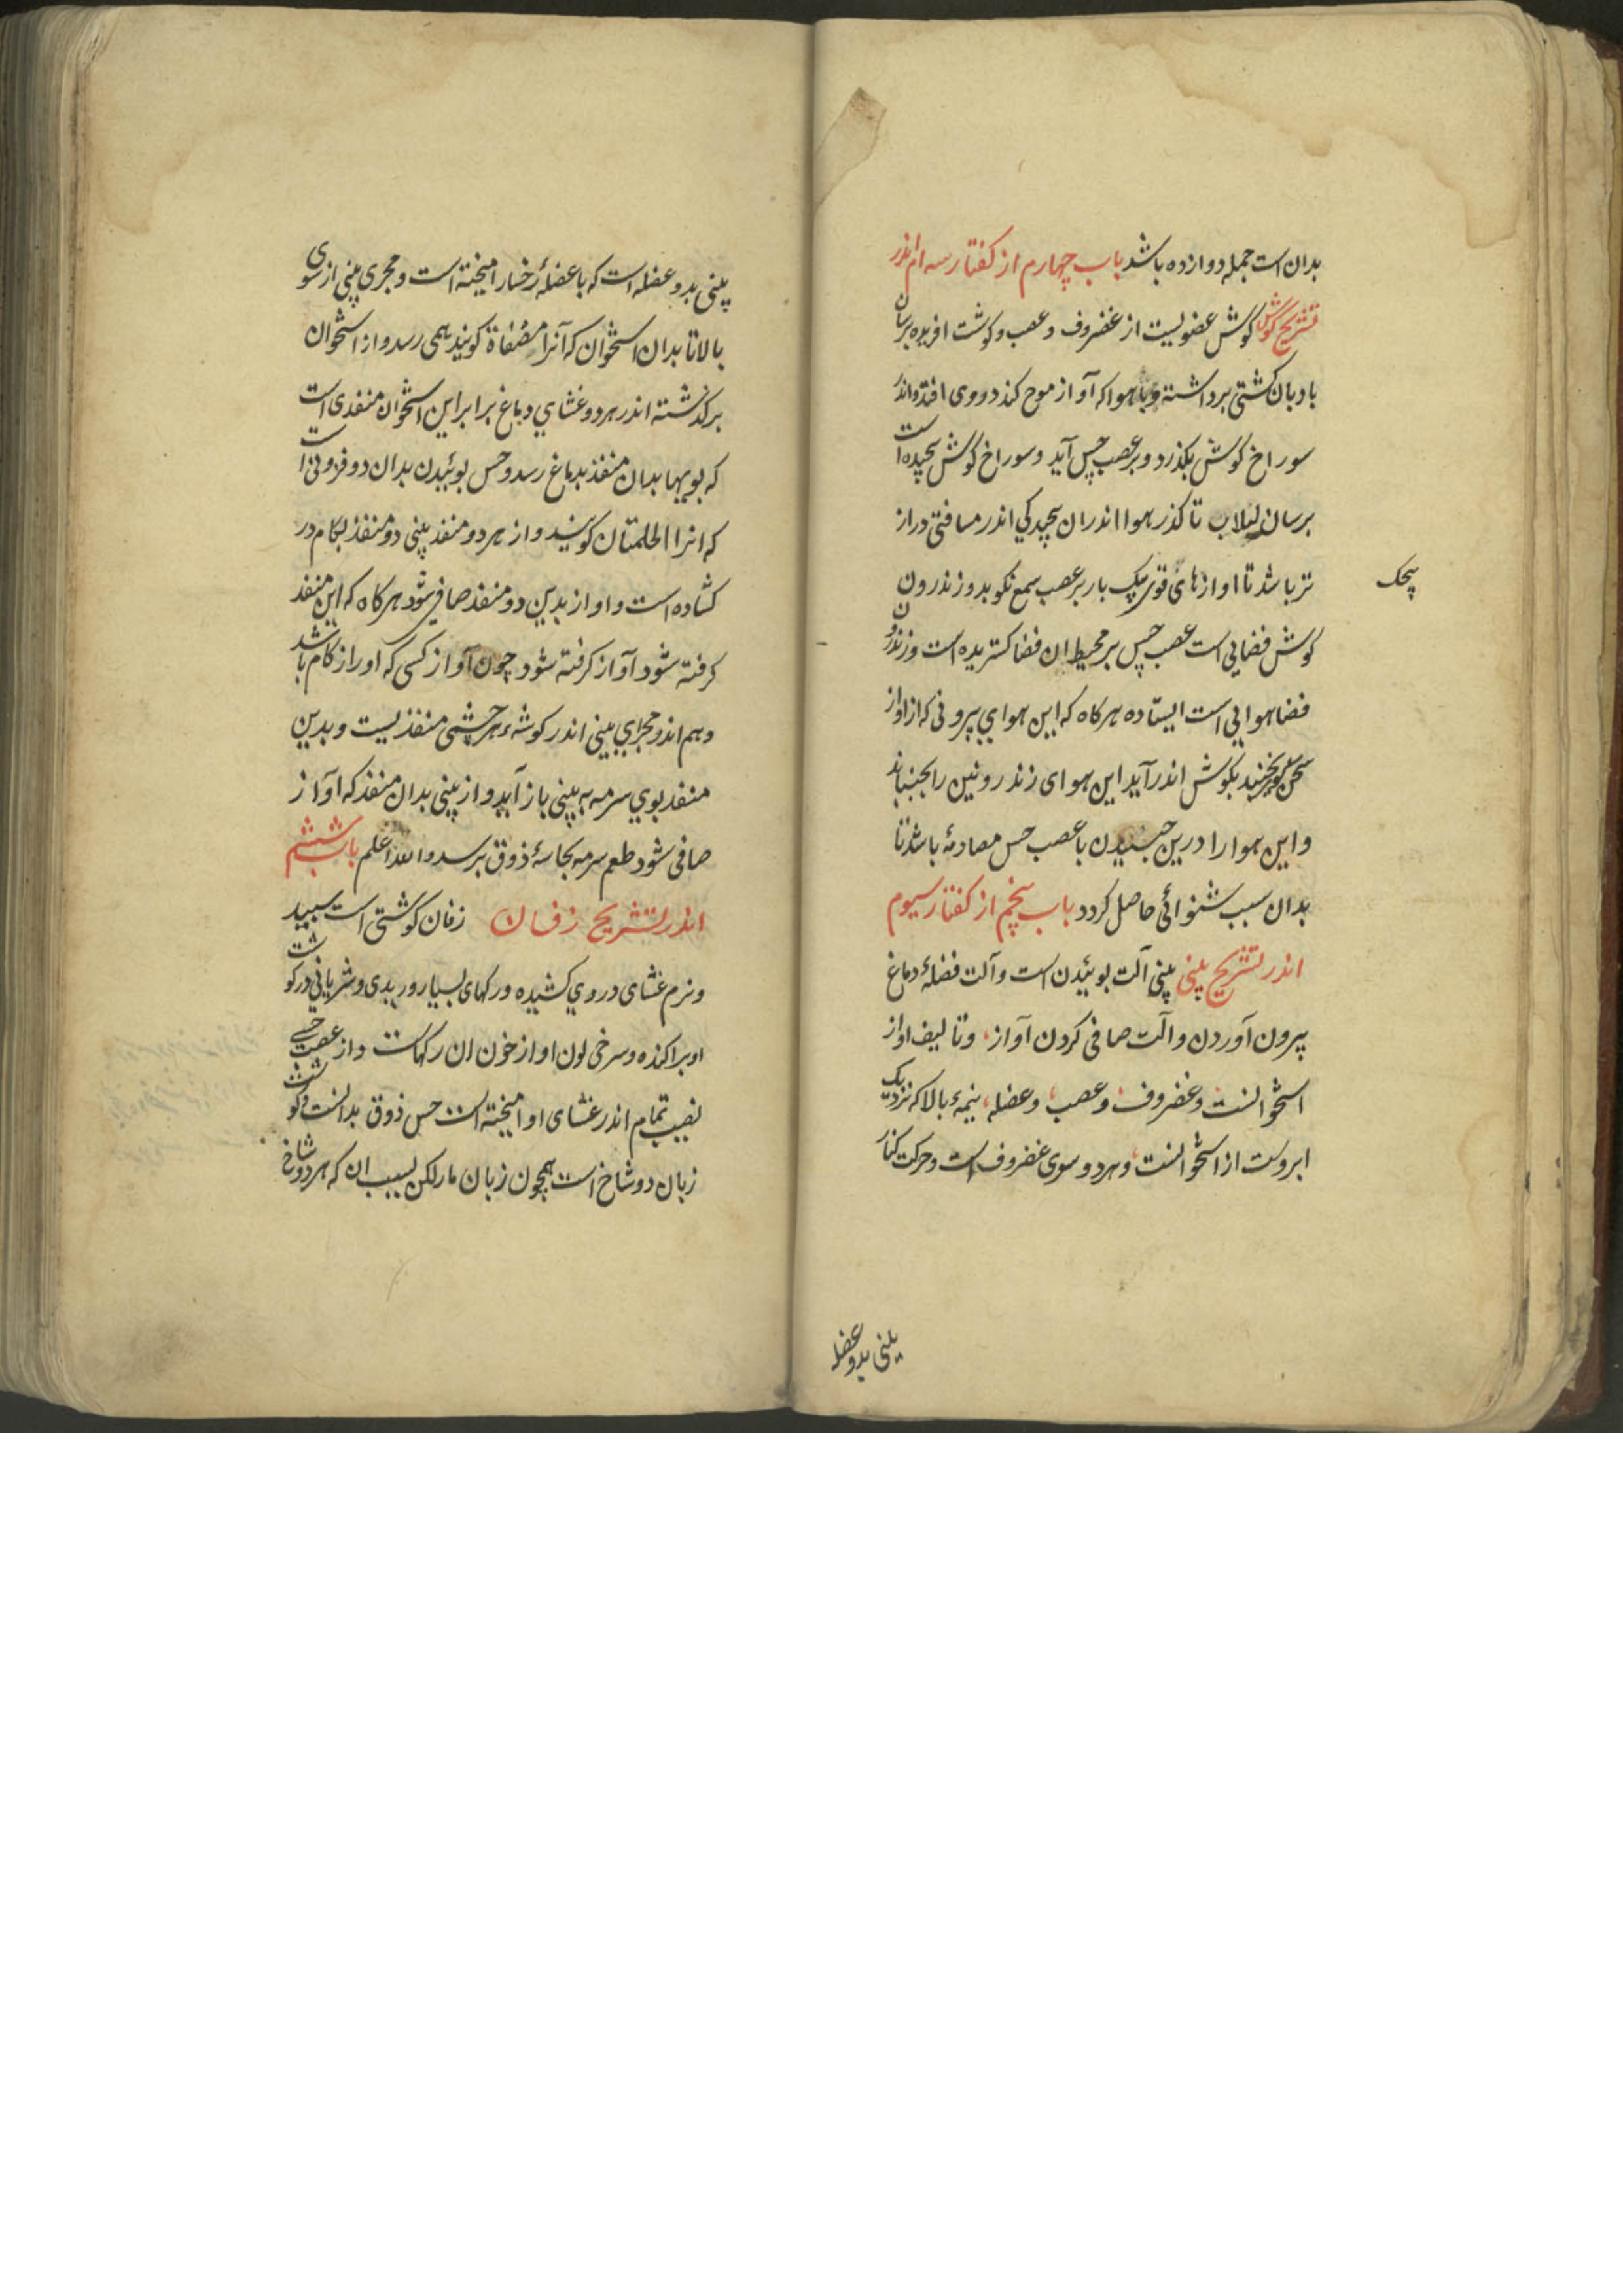 بدان است جمله دوازده باشد باب چهارم از کفتار سه ام اندر
تشریح کوش کوش عضویست از غضروف و عصب و کوشت افریده برسان
بادبان کشتی برداشته و تا هوا که آواز موج کند دروی افتد و اندر
سوراخ کوش بکذرد و بر عصب حس آید و سوراخ کوش پیچیده است
برسان لبلاب تا کذر هوا اندران پیچیدکی اندر مسافتی دراز
تر باشد تا اوازهای قوی بیک بار بر عصب سمع نکوبد و زندرون
پیچک
کوش فضایی است عصب حس بر محیط ان فضا کستریده است وزندرون
فضا هوایی است ایستاده هرکاه که این هوای بیرونی که از اواز
بجنبد بکوش اندر آید این هوای زندرونین را بجنباند
و این هوا را درین جنبیدن با عصب حس مصادمهٔ باشد تا
بدان سبب شنوائی حاصل کردد باب پنجم از کفتار سیوم
اندر تشریح بینی بینی آلت بوئیدن است و آلت فضلهٔ دماغ
بیرون آوردن و آلت صافی کردن آواز، و تالیف اواز
استخوانست و غضروف، و عصب، و عضله، نیمهٔ بالا که نزدیک
ابروست از استخوانست، و هر دو سوی غضروف است و حرکت کنار
بینی بدو عضله
بینی بدو عضله است که با عضلهٔ رخسار امیخته است و مجری بینی از سوی
بالا تا بدان استخوان که آنرا مصفاة کویند همی رسد و از استخوان
برکذشته اندر هر دو غشای دماغ برابر این استخوان منفدی است
که بویها بدان منفذ بدماغ رسد و حس بوئیدن بدان دو فزونی است
که انرا الحلمتان کویند و از هر دو منفذ بینی دو منفذ بکام در
کشاده است و اواز بدین دو منفذ صافی شود هرکاه که این منفذ
کرفته شود آواز کرفته شود چون آواز کسی که اورا زکام باشد
و هم اندر مجرای بینی اندر کوشهٔ هر چشمی منفذیست و بدین
منفذ بوی سرمه به بینی باز آید و از بینی بدان منفذ که آواز
صافی شود طعم سرمه بحاسهٔ ذوق برسد و الله اعلم باب ششم
اندر تشریح زفان زفان کوشتی است سپید
و نرم غشای در وی کشیده و رکهای بسیار وریدی و شریانی در کوشت
او پراکنده و سرخی لون او از خون ان رکهاست و از عصب حسی
نصیب تمام اندر غشای او امیخته است حس ذوق بدانست و کوشت
زبان دو شاخ است همچون زبان مار لکن بسبب ان که هر دو شاخ